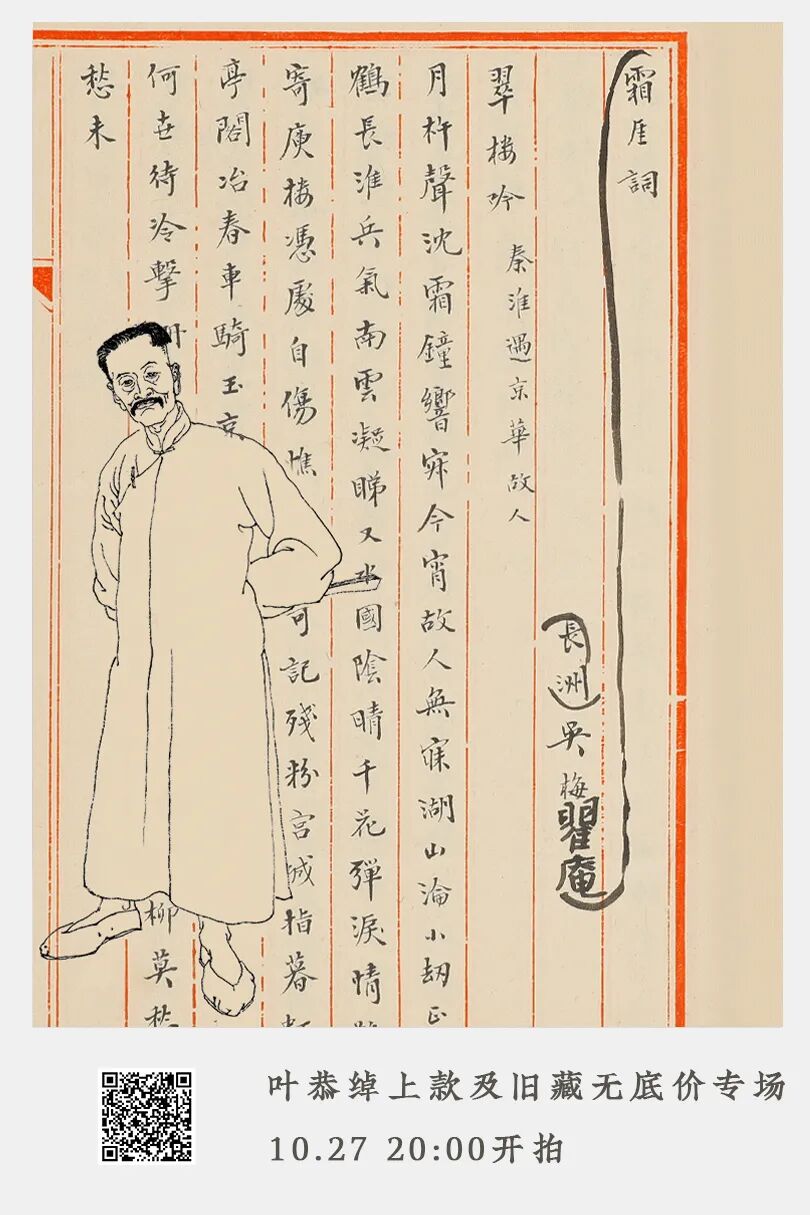 霜厓詞
長洲吳梅瞿庵
翠樓吟 秦淮遇京華故人
月杵聲沈霜鐘響寂今宵故人無寐湖山淪小劫正
鶴長淮兵氣南雲凝睇又水國陰晴千花彈淚情
寄庾樓憑處自傷憔 可記殘粉宮城指暮
亭閣冶春車騎玉京
何世待冷擊 柳莫愁
愁未
叶恭绰上款及旧藏无底价专场
10.27 20:00开拍